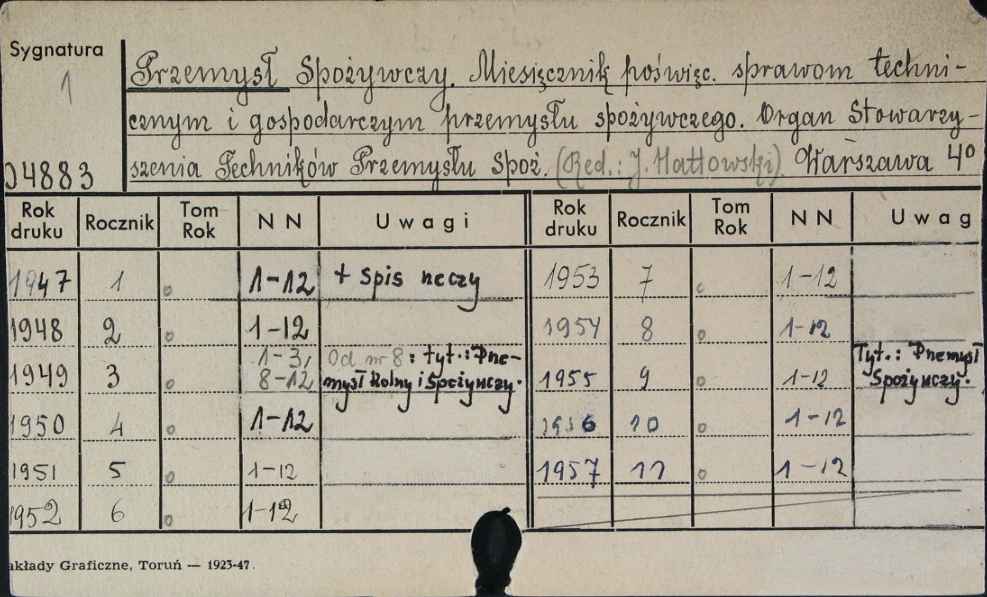 Sygnatura
1
04883
Przemysł Spożywczy. Miesięcznik poświęc. sprawom techni-
cznym i gospodarczym przemysłu spożywczego. Organ Stowarzy-
szenia Techników Przemysłu Spoż. (Red.: J. Hattowski) Warszawa 4º
Rok druku Rocznik Tom Rok NN Uwagi Rok druku Rocznik Tom Rok NN Uwag
1947 1 o 1-12 + spis rzeczy 1953 7 o 1-12
1948 2 o 1-12 1954 8 o 1-12
1949 3 o 1-3, 8-12 Od nr 8: tyt.: Prze-mysł Rolny i Spożywczy. 1955 9 o 1-12 Tyt.: Przemysł Spożywczy.
1950 4 o 1-12 1956 10 o 1-12
1951 5 o 1-12 1957 11 o 1-12
1952 6 o 1-12
akłady Graficzne, Toruń — 1923-47.